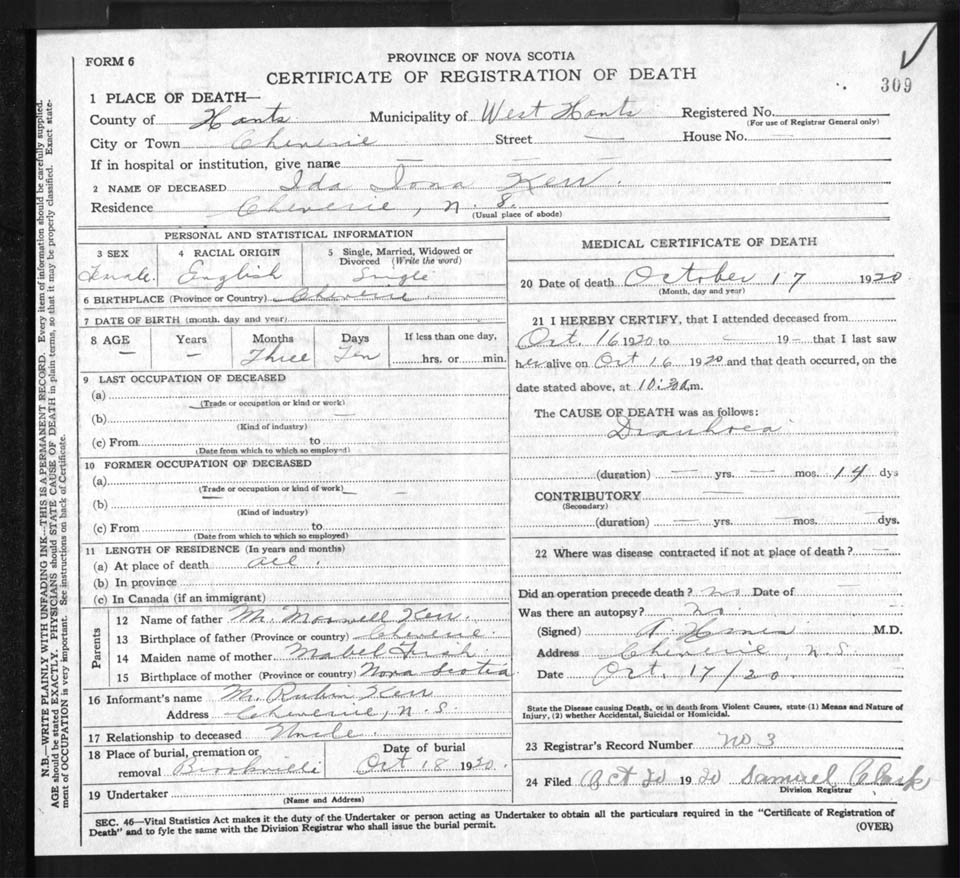 309
FORM 6
PROVINCE OF NOVA SCOTIA
CERTIFICATE OF REGISTRATION OF DEATH
1 PLACE OF DEATH—
County of Hants Municipality of West Hants Registered No.
(For use of Registrar General only)
City or Town Cheverie Street — House No. —
If in hospital or institution, give name — — —
2 NAME OF DECEASED Ida Iona Kerr.
Residence Cheverie, N. S.
(Usual place of abode)
PERSONAL AND STATISTICAL INFORMATION
3 SEX 4 RACIAL ORIGIN 5 Single, Married, Widowed or Divorced (Write the word)
Female. English Single
6 BIRTHPLACE (Province or Country) Cheverie.
7 DATE OF BIRTH (month, day and year)
8 AGE Years Months Days If less than one day,
— — Three Ten hrs. or min.
9 LAST OCCUPATION OF DECEASED
(a)
(Trade or occupation or kind or work)
(b) —
(Kind of industry)
(c) From to
(Date from which to which so employed)
10 FORMER OCCUPATION OF DECEASED
(a)
(Trade or occupation or kind of work)
(b)
(Kind of industry)
(c) From to
(Date from which to which so employed)
11 LENGTH OF RESIDENCE (In years and months)
(a) At place of death all.
(b) In province
(c) In Canada (if an immigrant)
Parents
12 Name of father Mr. Maxwell Kerr.
13 Birthplace of father (Province or country) Cheverie
14 Maiden name of mother Mabel Fish.
15 Birthplace of mother (Province or country) Nova Scotia
16 Informant's name Mr. Rubin Kerr
Address Cheverie, N. S.
17 Relationship to deceased Uncle.
18 Place of burial, cremation or removal Brookville Date of burial Oct 18 1920.
19 Undertaker
(Name and Address)
MEDICAL CERTIFICATE OF DEATH
20 Date of death October 17 1920.
(Month, day and year)
21 I HEREBY CERTIFY, that I attended deceased from
Oct. 16 1920 to — 19 — that I last saw
her alive on Oct 16 1920 and that death occurred, on the
date stated above, at 10:30 a.m.
The CAUSE OF DEATH was as follows:
Diarrhoea
(duration) — yrs. — mos. 14 dys
CONTRIBUTORY —
(Secondary)
(duration) — yrs. — mos. — dys.
22 Where was disease contracted if not at place of death? —
Did an operation precede death? no Date of —
Was there an autopsy? no
(Signed) M.D.
Address Cheverie, N. S.
Date Oct. 17/20.
State the Disease causing Death, or in death from Violent Causes, state (1) Means and Nature of
Injury, (2) whether Accidental, Suicidal or Homicidal.
23 Registrar's Record Number no 3
24 Filed Oct 20 1920 Samuel Clark
Division Registrar
SEC. 46—Vital Statistics Act makes it the duty of the Undertaker or person acting as Undertaker to obtain all the particulars required in the "Certificate of Registration of
Death" and to fyle the same with the Division Registrar who shall issue the burial permit.
(OVER)
N.B.—WRITE PLAINLY WITH UNFADING INK—THIS IS A PERMANENT RECORD. Every item of information should be carefully supplied.
AGE should be stated EXACTLY. PHYSICIANS should STATE CAUSE OF DEATH in plain terms, so that it may be properly classified. Exact state-
ment of OCCUPATION is very important. See instructions on back of Certificate.